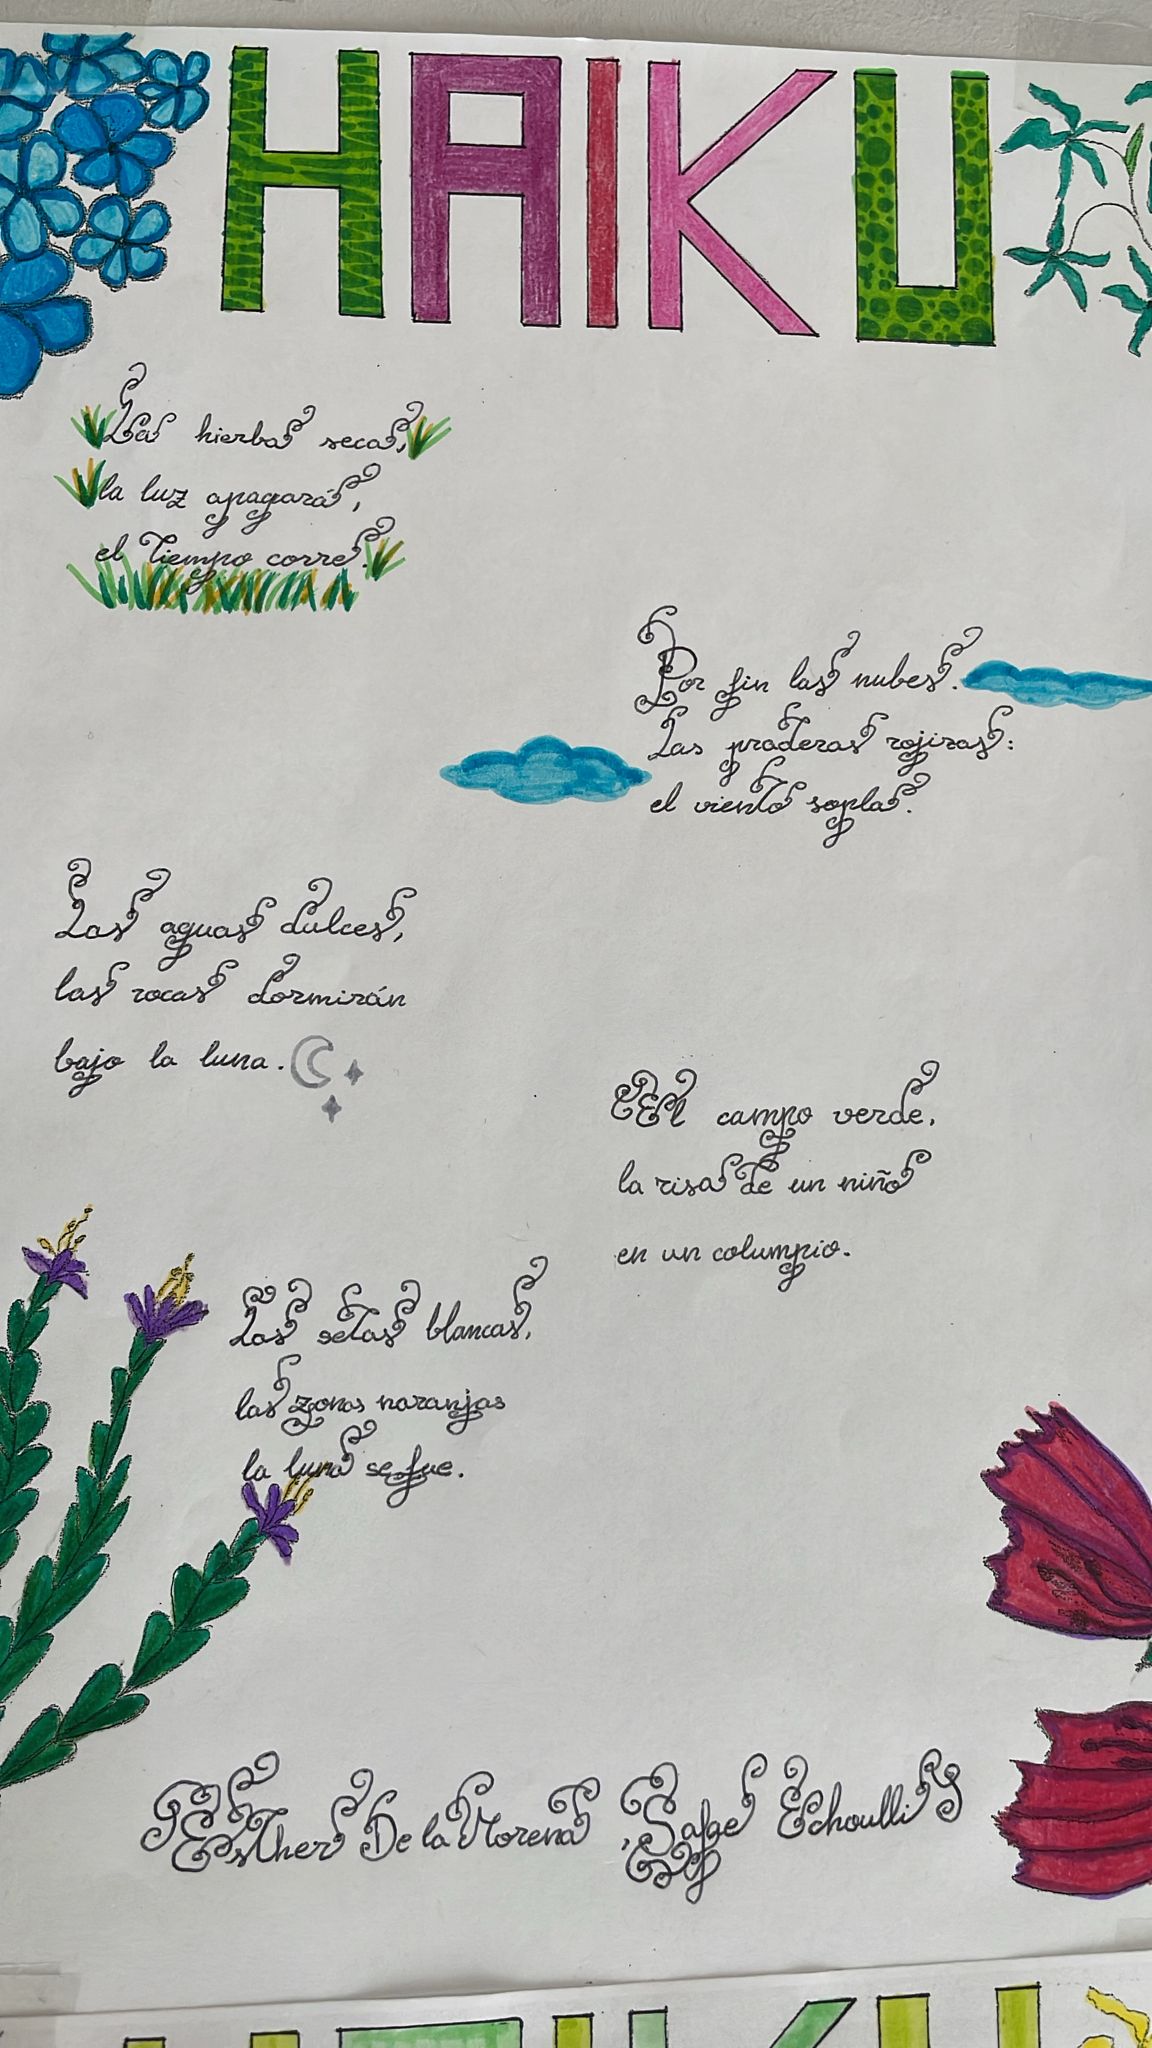 HAIKU
La hierba seca,
la luz apagará,
el tiempo corre.
Por fin las nubes.
Las praderas rojizas:
el viento sopla.
Las aguas dulces,
las rocas dormirán
bajo la luna.
El campo verde,
la risa de un niño
en un columpio.
Las setas blancas,
las zonas naranjas
la luna se fue.
Esther De la Morena, Safae Echoulli